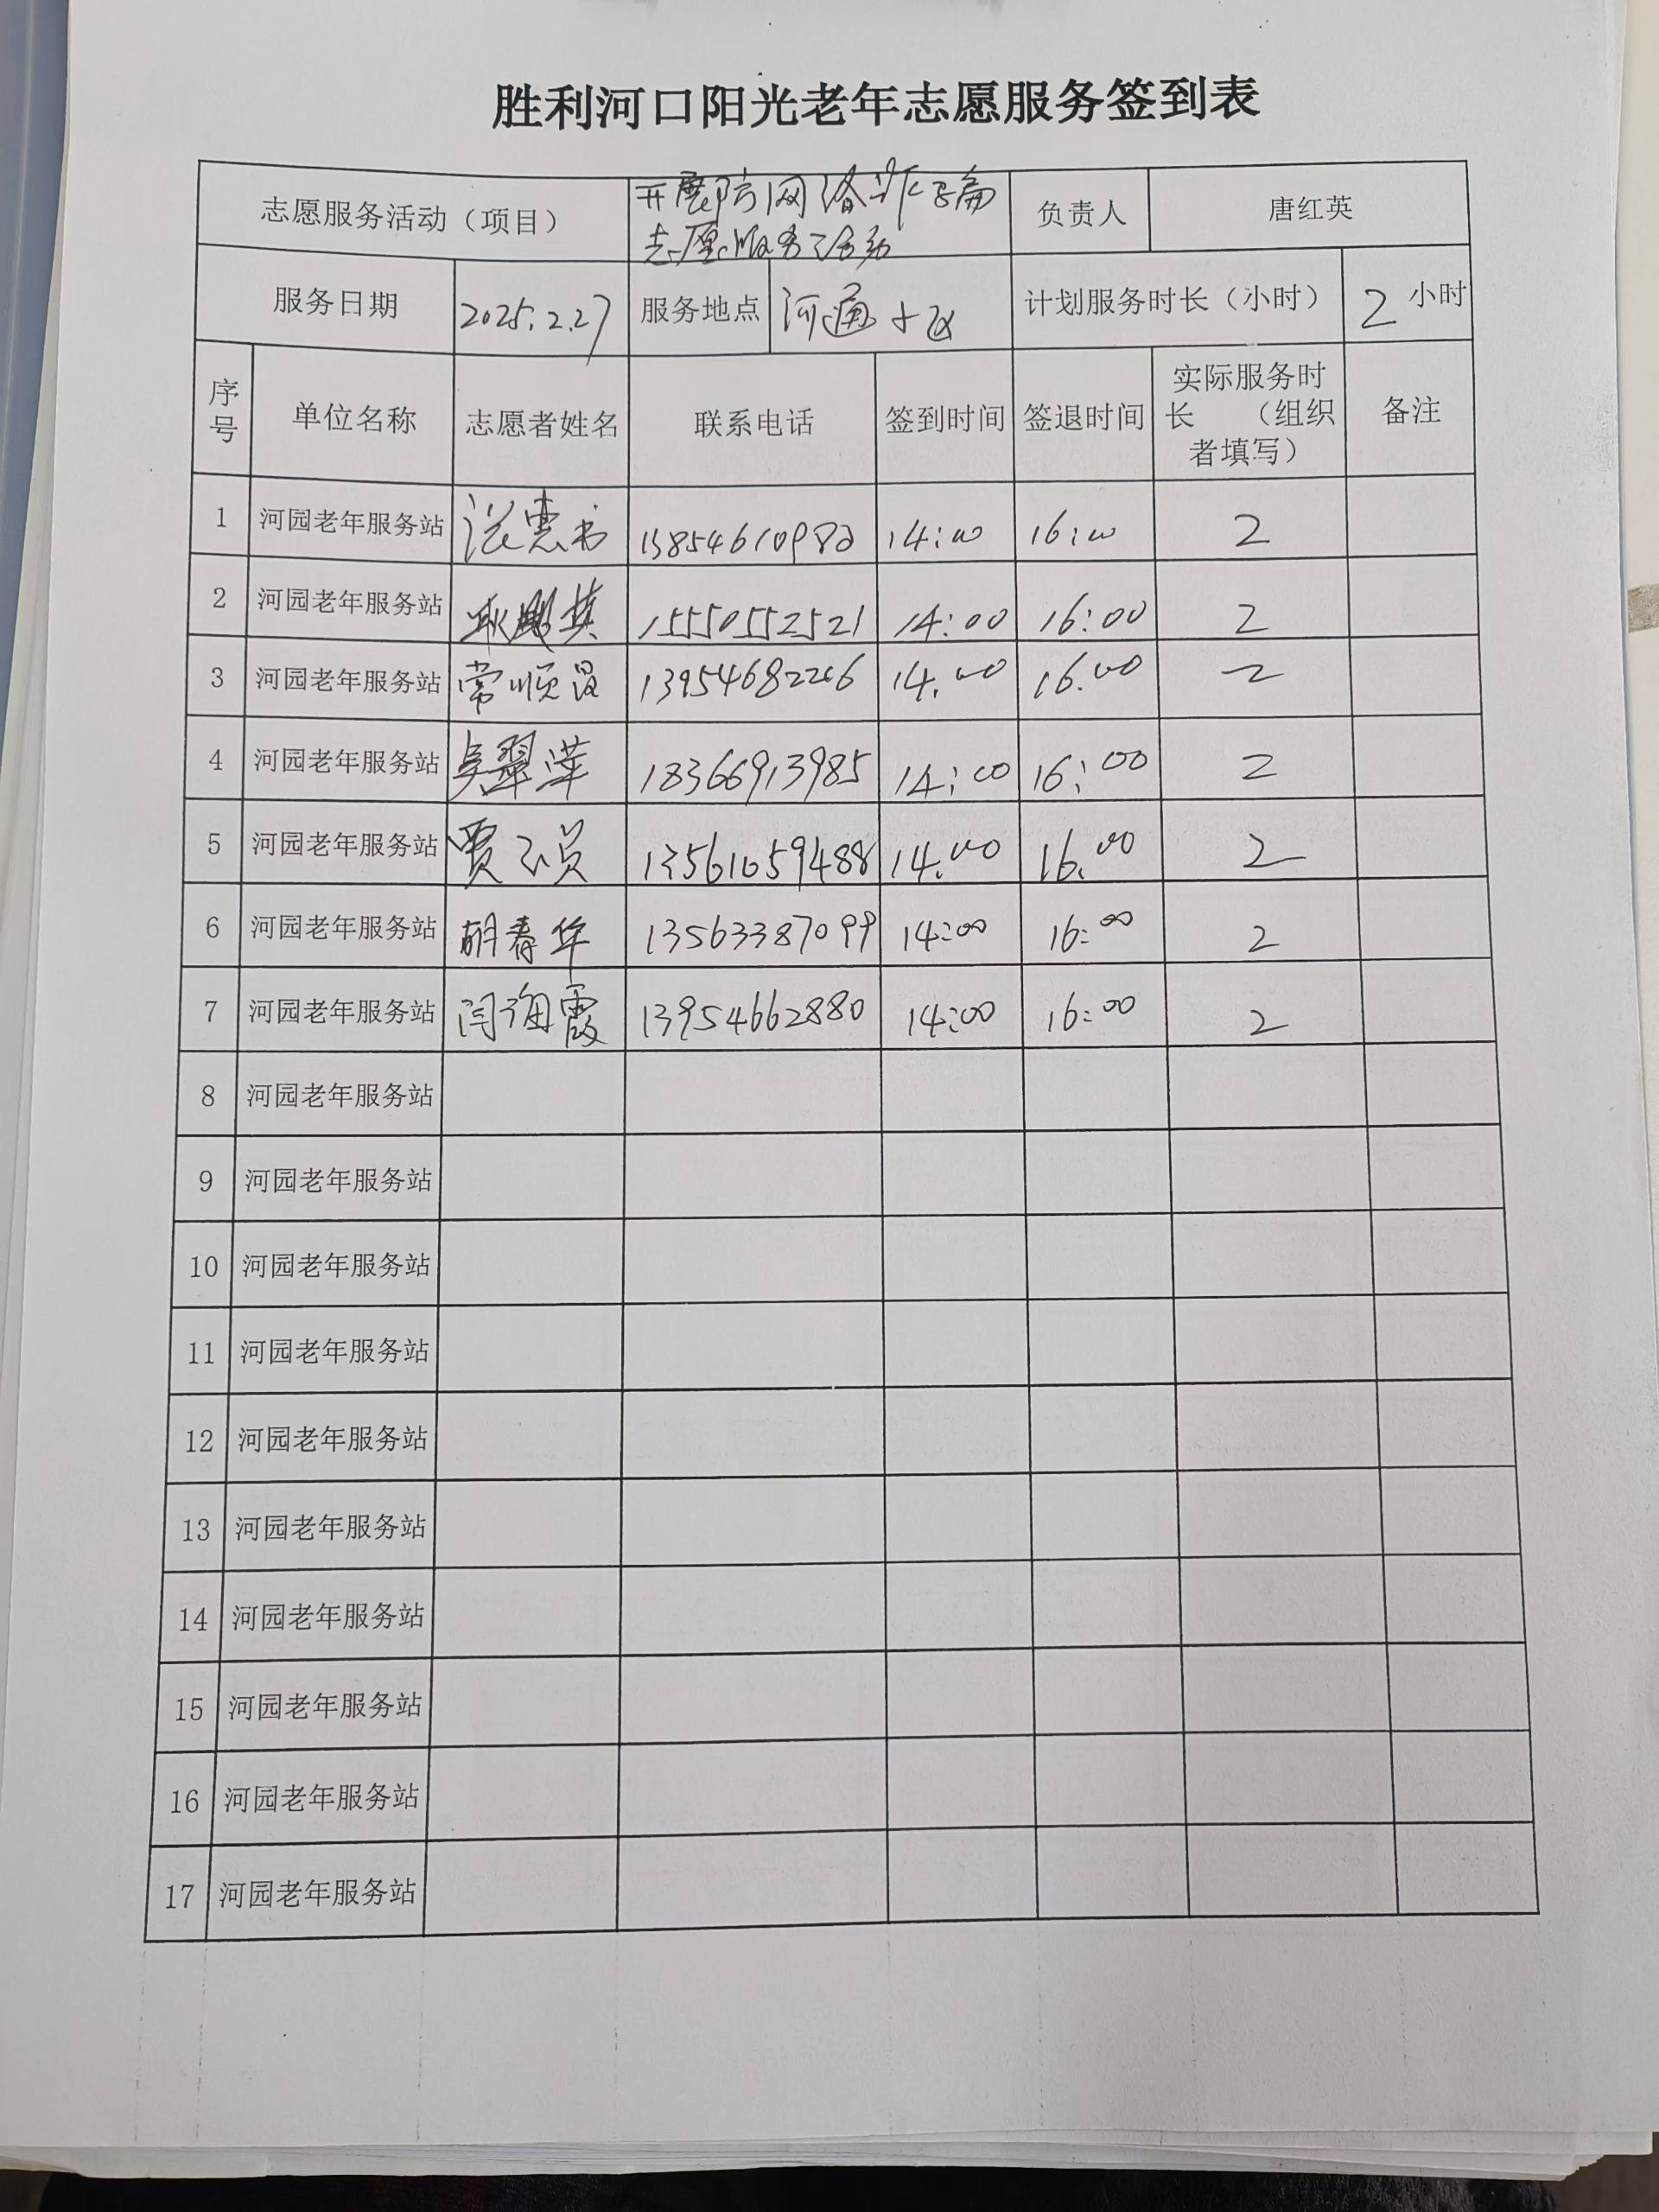 胜利河口阳光老年志愿服务签到表
志愿服务活动（项目） 开展防网络诈骗 负责人 唐红英
志愿服务活动
服务日期 2025.2.27 服务地点 河通小区 计划服务时长（小时） 2 小时
序号 单位名称 志愿者姓名 联系电话 签到时间 签退时间 实际服务时长 （组织者填写） 备注
1 河园老年服务站 14:00 16:00 2
2 河园老年服务站 15550552521 14:00 16:00 2
3 河园老年服务站 常顺昌 13954682266 14.00 16.00 2
4 河园老年服务站 吴翠萍 18366913985 14:00 16:00 2
5 河园老年服务站 13561059488 14.00 16.00 2
6 河园老年服务站 胡春华 13563387099 14:00 16:00 2
7 河园老年服务站 闫海霞 13954662880 14:00 16:00 2
8 河园老年服务站
9 河园老年服务站
10 河园老年服务站
11 河园老年服务站
12 河园老年服务站
13 河园老年服务站
14 河园老年服务站
15 河园老年服务站
16 河园老年服务站
17 河园老年服务站